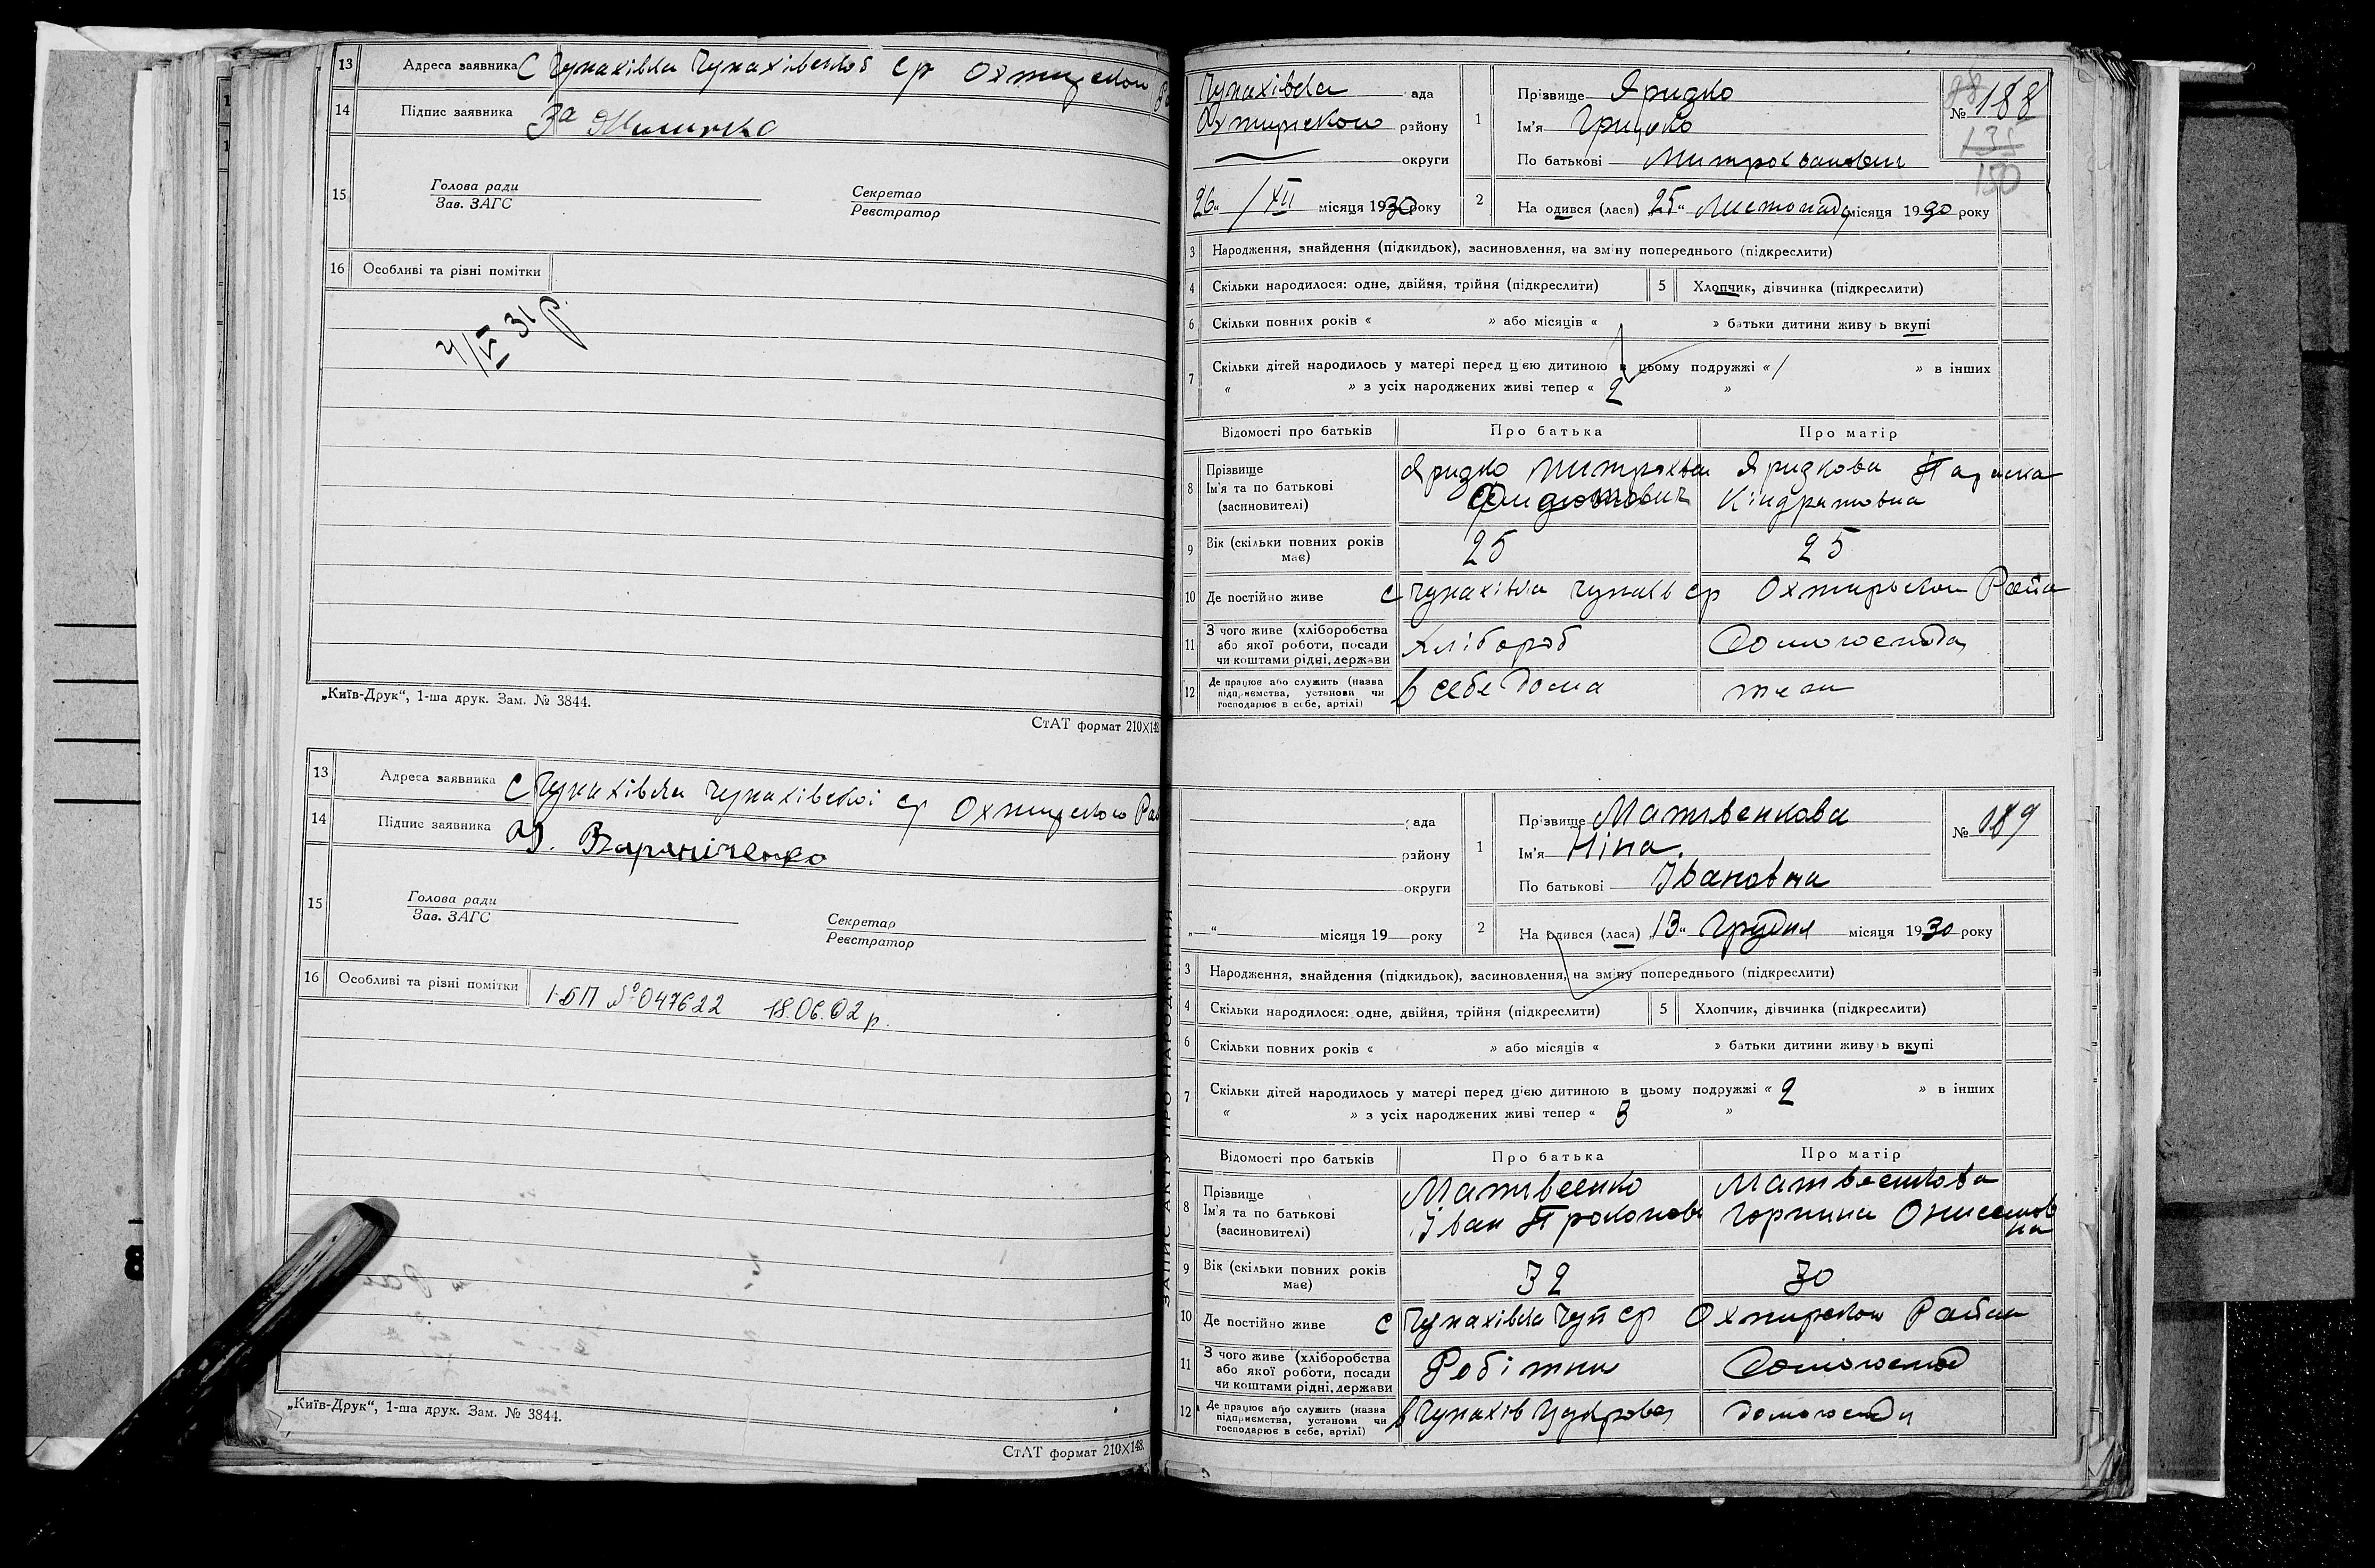 13 Адреса заявника С Чупахівка Чупахівської ср Охтирського
14 Підпис заявника За
15 Голова ради
Зав. ЗАГС
Секретар
Реєстратор
16 Особливі та різні помітки
31 р.
„Київ-Друк“, 1-ша друк. Зам. № 3844.
СтАТ формат 210×148.
13 Адреса заявника С Чупахівка Чупахівської ср Охтирського
14 Підпис заявника
15 Голова ради
Зав. ЗАГС
Секретар
Реєстратор
16 Особливі та різні помітки І-БП № 047622 18.06.02 р.
„Київ-Друк“, 1-ша друк. Зам. № 3844.
СтАТ формат 210×148.
ЗАПИС АКТУ ПРО НАРОДЖЕННЯ
Чупахівка рада
Охтирського району
округи
26 / XII місяця 1930 року
1 Прізвище Яризко
Ім'я Грицько
По батькові Митрохванович
№ 188
150
2 На одився (лася) 25 Листопада місяця 1930 року
3 Народження, знайдення (підкидьок), засиновлення, на зміну попереднього (підкреслити)
4 Скільки народилося: одне, двійня, трійня (підкреслити) 5 Хлопчик, дівчинка (підкреслити)
6 Скільки повних років « » або місяців « » батьки дитини живуть вкупі
7 Скільки дітей народилось у матері перед цією дитиною в цьому подружжі « 1 » в інших
« » з усіх народжених живі тепер « 2 »
Відомості про батьків Про батька Про матір
8 Прізвище Ім'я та по батькові (засиновителі)
Яризко Яризкова Параска
Кіндратовна
9 Вік (скільки повних років має) 25 25
10 Де постійно живе с Чупахівка Чупахів ср Охтирьского Району
11 З чого живе (хліборобства або якої роботи, посади чи коштами рідні, держави Хлібороб Домогоспода
12 Де працює або служить (назва підприємства, установи чи господарює в себе, артілі) в себе дома теж
рада
району
округи
„ “ місяця 19 року
1 Прізвище Матвеенкова
Ім'я Ніна.
По батькові Івановна
№ 189
2 На одився (лася) 13 Грудня місяця 1930 року
3 Народження, знайдення (підкидьок), засиновлення, на зміну попереднього (підкреслити)
4 Скільки народилося: одне, двійня, трійня (підкреслити) 5 Хлопчик, дівчинка (підкреслити)
6 Скільки повних років « » або місяців « » батьки дитини живуть вкупі
7 Скільки дітей народилось у матері перед цією дитиною в цьому подружжі « 2 » в інших
« » з усіх народжених живі тепер « 3 »
Відомості про батьків Про батька Про матір
8 Прізвище Ім'я та по батькові (засиновителі)
Матвеенко Матвеенкова
Іван Прокопов Горпина Онисимовна
9 Вік (скільки повних років має) 32 30
10 Де постійно живе с Чупахівка Чуп ср Охтирського Району
11 З чого живе (хліборобства або якої роботи, посади чи коштами рідні, держави Робітник Домогоспод
12 Де працює або служить (назва підприємства, установи чи господарює в себе, артілі) в Чупахів Цукрова домогоспода